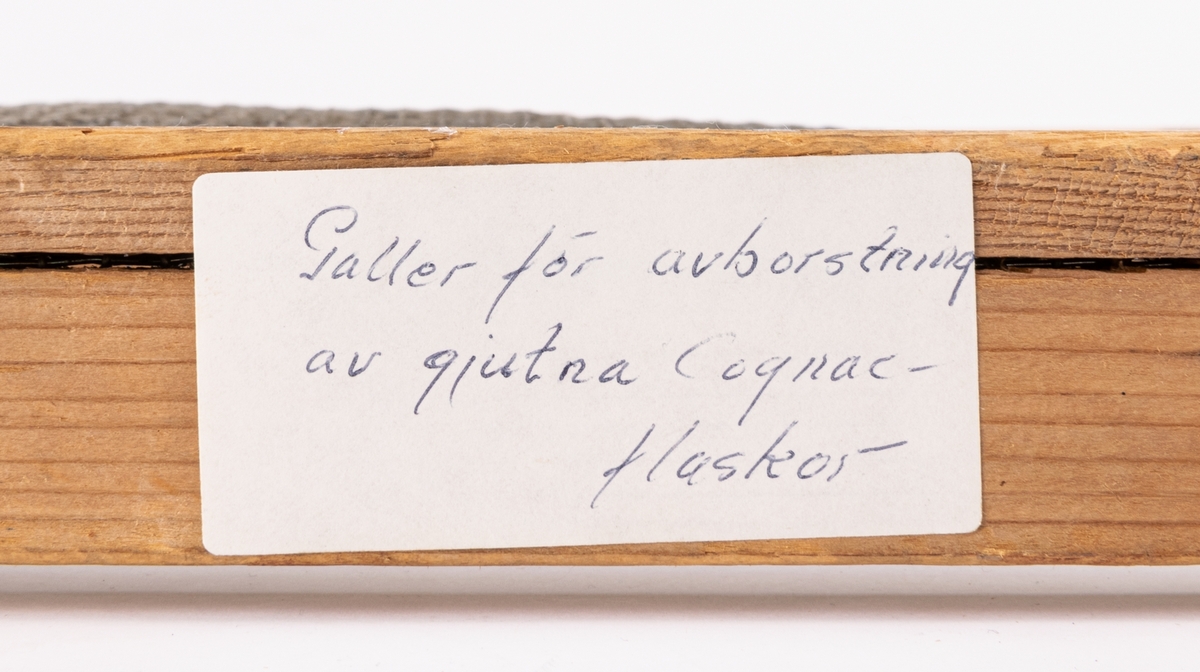 Galler för avborstning
av gjutna Cognac-
flaskor